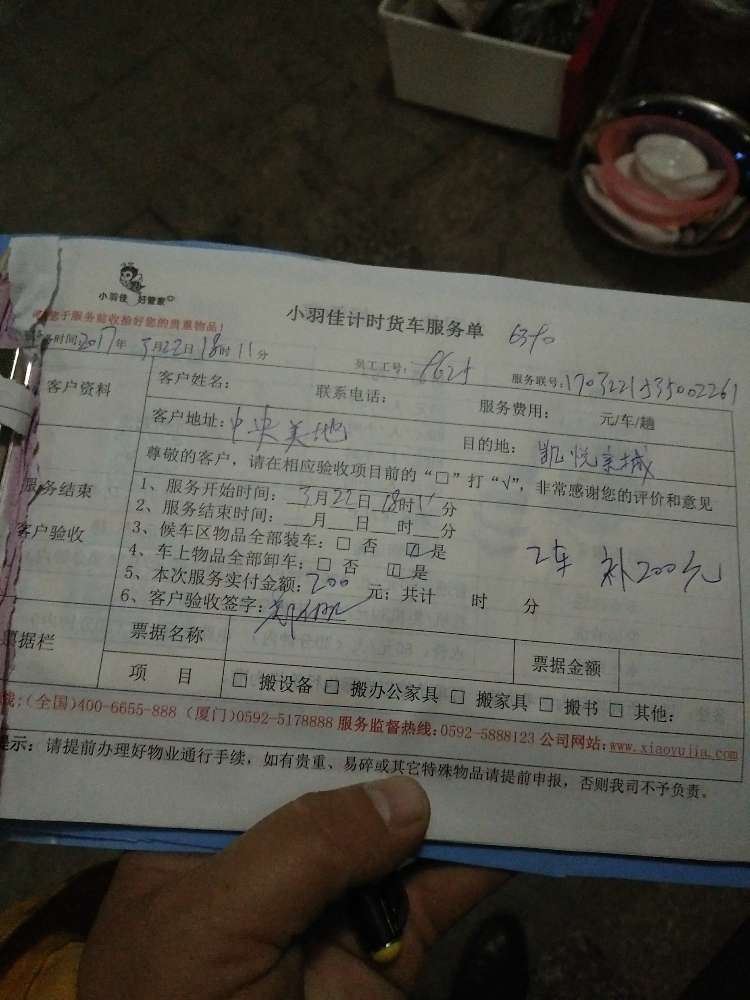 小羽佳 好管家
您于服务前收拾好您的贵重物品！
小羽佳计时货车服务单
务时间:2017年3月22日18时11分 员工工号: 服务联号:
客户资料 客户姓名: 联系电话: 服务费用: 元/车/趟
客户地址:中央美地 目的地: 凯悦京城
服务结束
客户验收
尊敬的客户，请在相应验收项目前的“□”打“√”，非常感谢您的评价和意见
1、服务开始时间: 3月22日18时11分
2、服务结束时间: 月 日 时 分
3、候车区物品全部装车: □ 否 ☑ 是
4、车上物品全部卸车: □ 否 ☑ 是
2车 补200元
5、本次服务实付金额:200 元; 共计 时 分
6、客户验收签字:
票据栏 票据名称 票据金额
项 目 □ 搬设备 □ 搬办公家具 □ 搬家具 □ 搬书 □ 其他:
线:(全国)400-6655-888 (厦门)0592-5178888 服务监督热线:0592-5888123 公司网站:www.xiaoyujia.com
提示: 请提前办理好物业通行手续，如有贵重、易碎或其它特殊物品请提前申报，否则我司不予负责。